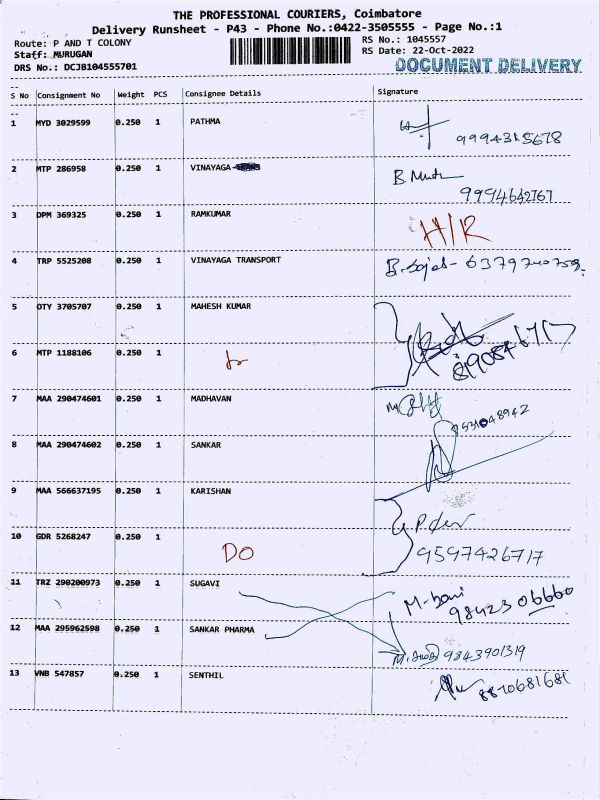 THE PROFESSIONAL COURIERS, Coimbatore
Delivery Runsheet - P43 - Phone No.:0422-3505555 - Page No.:1
Route: P AND T COLONY
Staff: MURUGAN
DRS No.: DCJB104555701
RS No.: 1045557
RS Date: 22-Oct-2022
DOCUMENT DELIVERY
S No Consignment No Weight PCS Consignee Details Signature
1 MYD 3029599 0.250 1 PATHMA
9994315678
2 MTP 286958 0.250 1 VINAYAGA
9994642767
3 DPM 369325 0.250 1 RAMKUMAR H/R
4 TRP 5525208 0.250 1 VINAYAGA TRANSPORT
5 OTY 3705707 0.250 1 MAHESH KUMAR
6 MTP 1188106 0.250 1
7 MAA 290474601 0.250 1 MADHAVAN
8 MAA 290474602 0.250 1 SANKAR
9 MAA 566637195 0.250 1 KARISHAN
10 GDR 5268247 0.250 1 DO 9597426717
11 TRZ 290200973 0.250 1 SUGAVI
9842306660
12 MAA 295962598 0.250 1 SANKAR PHARMA
9843901319
13 VNB 547857 0.250 1 SENTHIL
8870681681